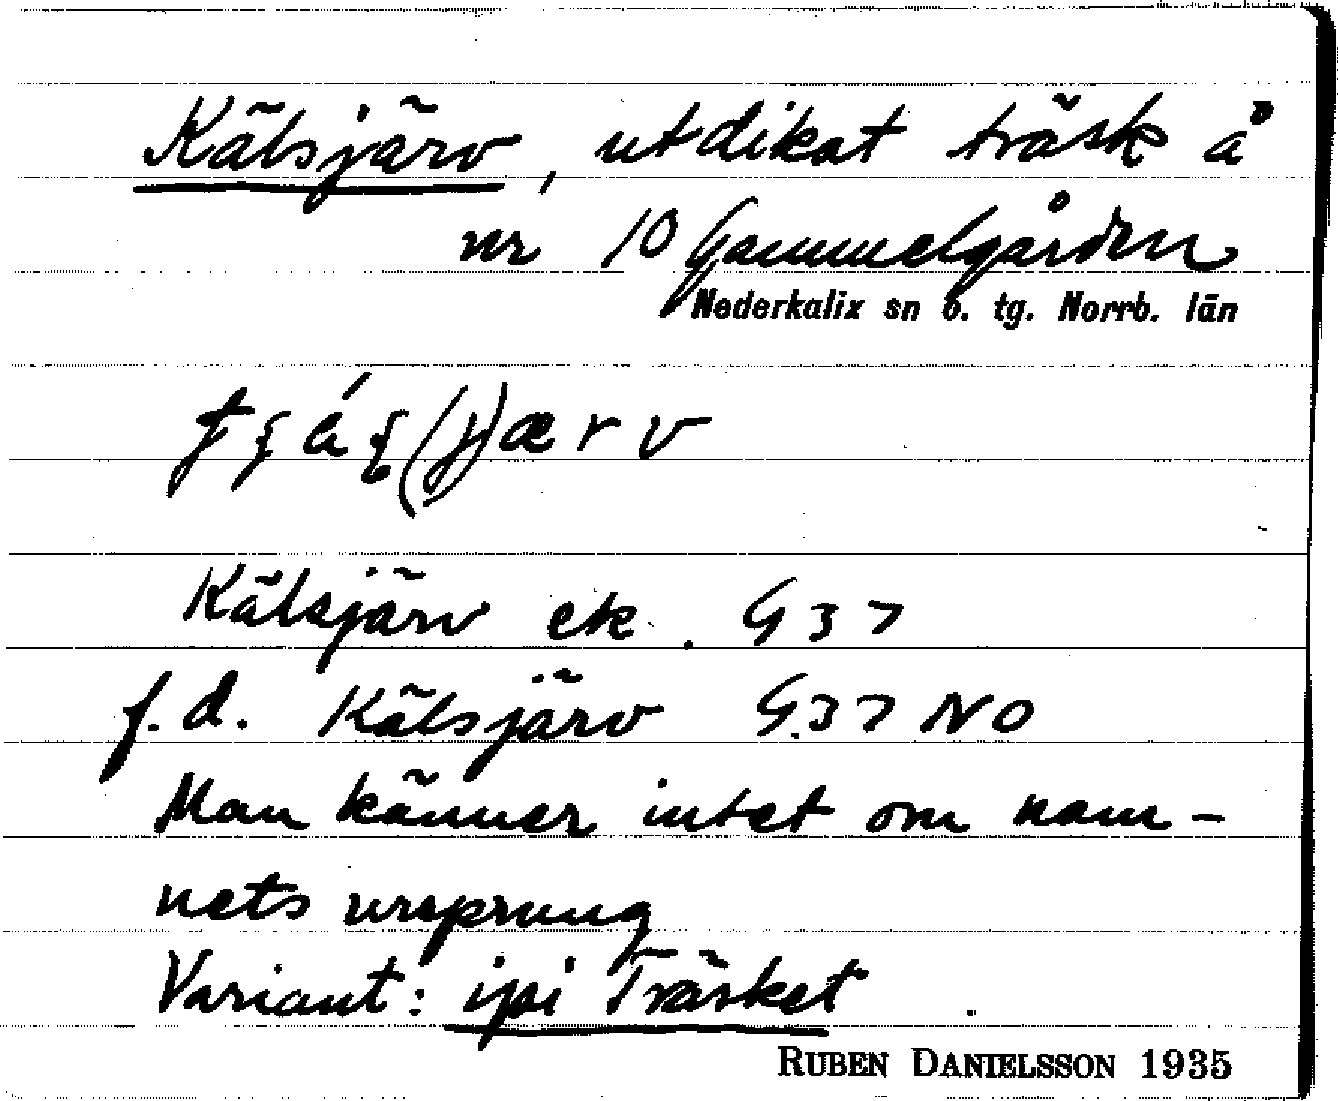 Kälsjärv, utdikat träsk å
nr 10 Gammelgården
Nederkalix sn o. tg. Norrb. län
Kälsjärv ek. G 37
f.d. Kälsjärv G.37 NO
Man känner intet om nam-
nets ursprung
Variant: ipi Träsket
RUBEN DANIELSSON 1935